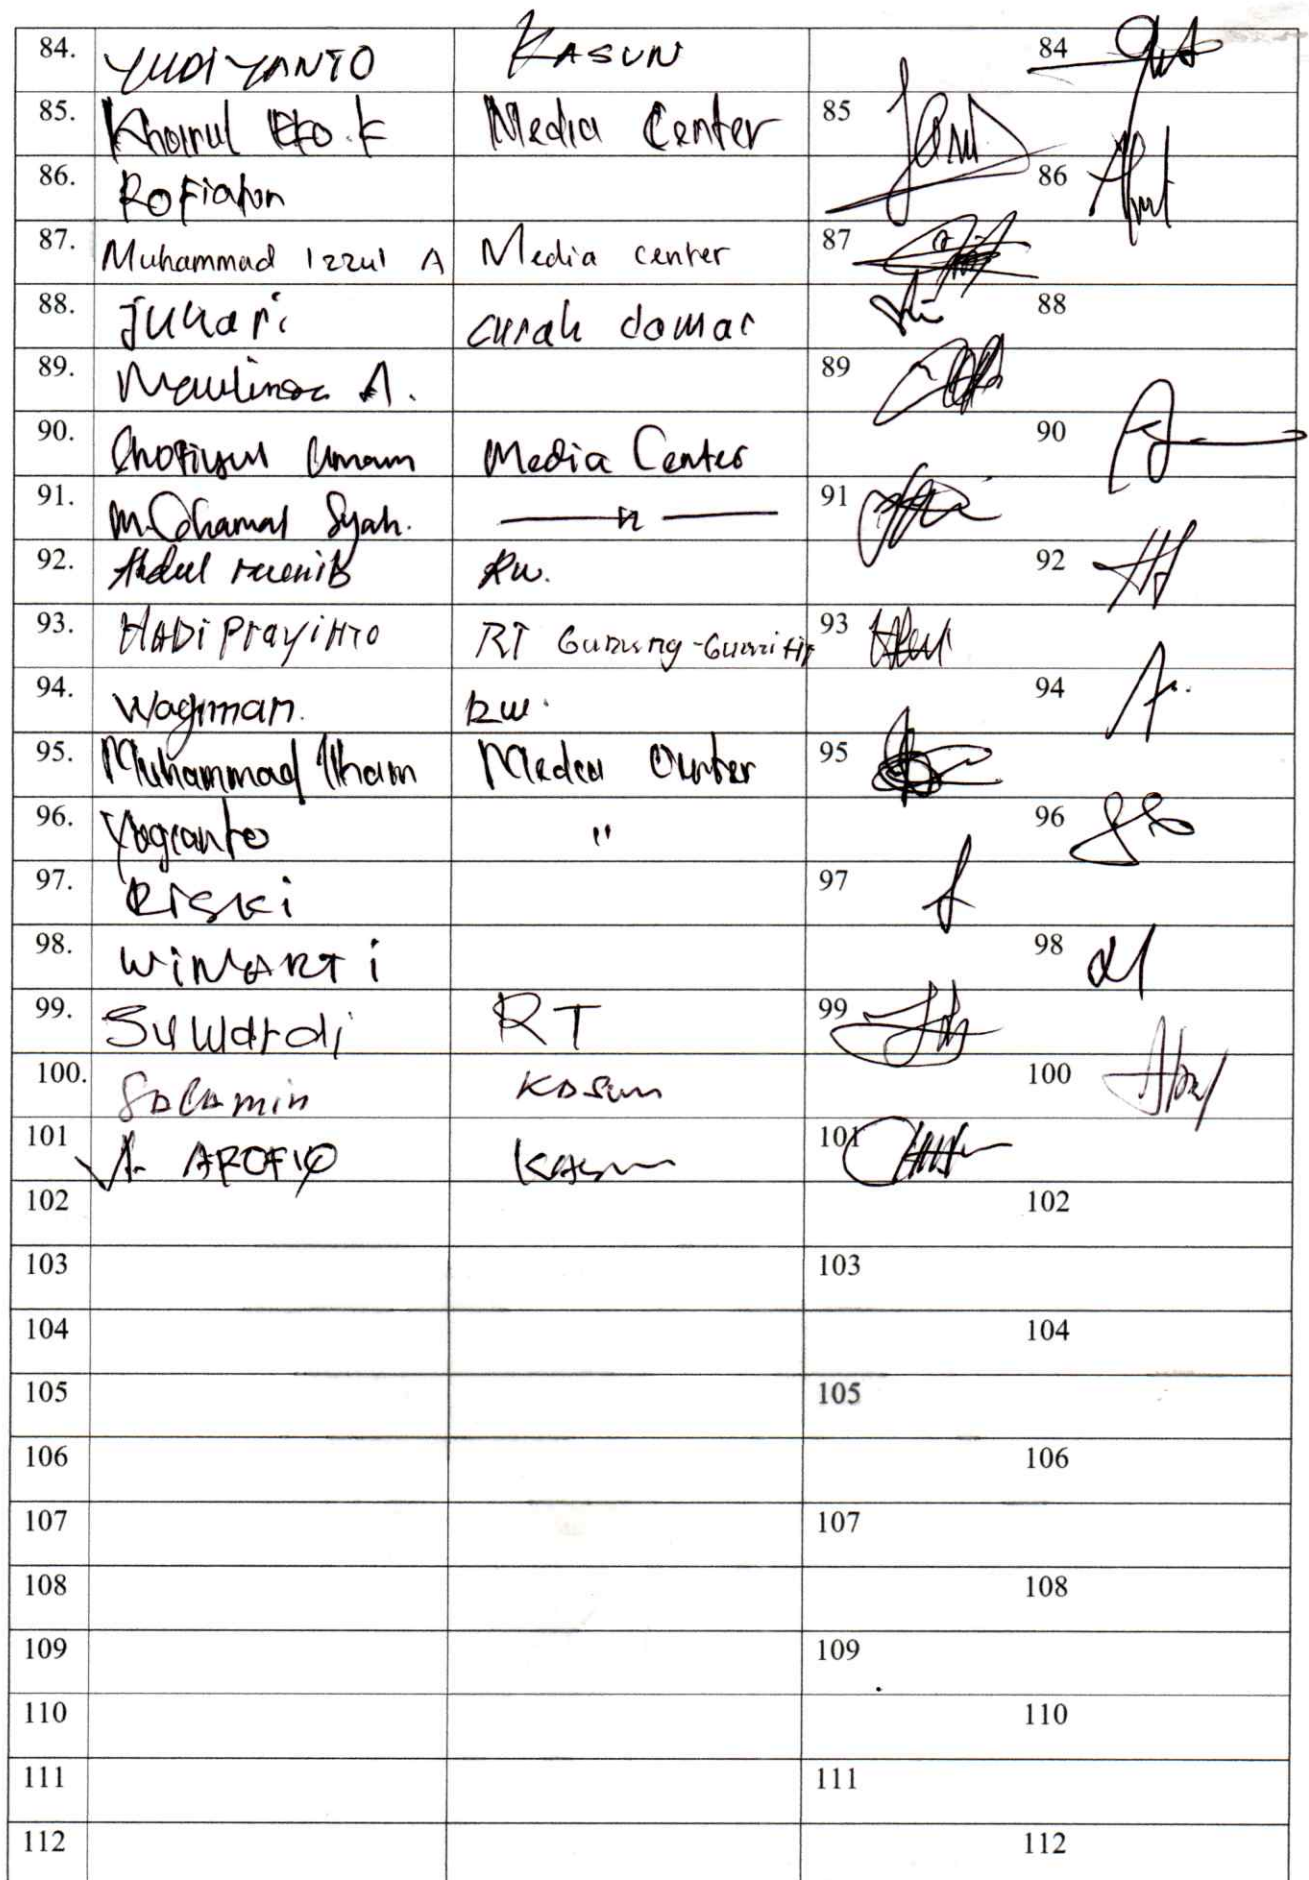 84. YUDIYANTO KASUN 84
85. Khoirul Eko.F Media Center 85
86. Rofiaton 86
87. Muhammad Izzul A Media center 87
88. Juhari curah damar 88
89. Maulinsa A. 89
90. Chofiyul Umam Media Center 90
91. Syah. 91
92. Abdul munib RW. 92
93. HADI Prayitno RT 93
94. Wagiman. RW. 94
95. Muhammad Ilham Media Center 95
96. Yogianto " 96
97. Riski 97
98. WINARTI 98
99. Suwardi RT 99
100. Solamin Kasun 100
101 A. AROFIQ Kasun 101
102 102
103 103
104 104
105 105
106 106
107 107
108 108
109 109
110 110
111 111
112 112